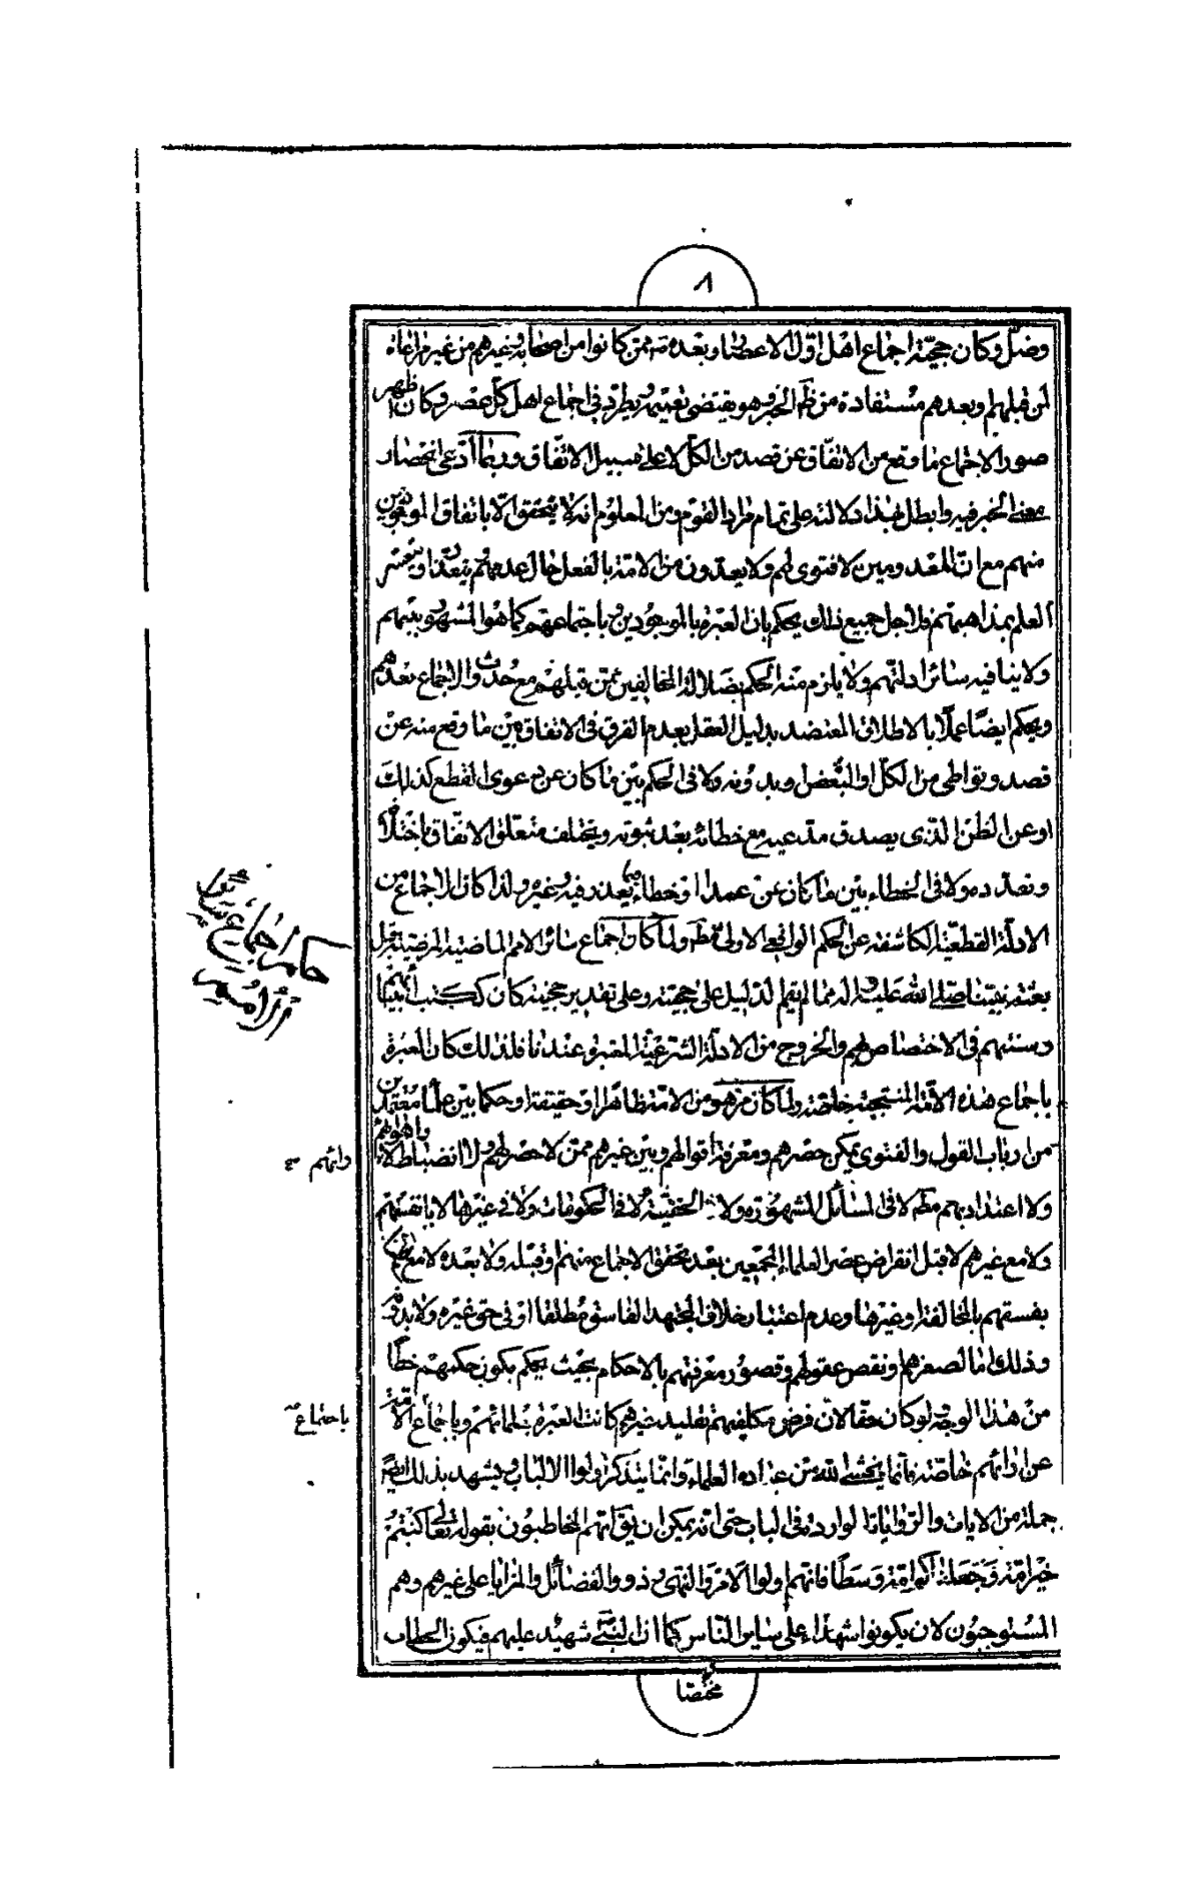 ٨
وضل وكان حجية اجماع اهل اول الاعصار وبعده ممن كانوا من اصحابه وغيرهم من غير مراعاة
لمن قبلهم وبعدهم مستفادة من الخبر وهو يقتضى تعميمه ويطرد فى اجماع اهل كل عصر وكان اظهر
صور الاجماع ما وقع من الاتفاق عن قصد من الكل لا على سبيل الاتفاق وربما ادعى انحصار
معنى الخبر فيه وابطل بهذا دلالته على تمام مراد القوم ومن المعلوم انه لا يتحقق الا باتفاق الموجودين
منهم مع ان المعدومين لا فتوى لهم ولا يعدون من الامة بالفعل حال عدمهم ويتعذر او يتعسر
العلم بمذاهبهم فلاجل جميع ذلك يحكم بان العبرة بالموجودين وباجتماعهم كما هو المشهور بينهم
ولا ينافيه سائر ادلتهم ولا يلزم منه الحكم بضلالة المخالفين ممن قبلهم مع حدوث الاجماع بعدهم
ويحكم ايضا عملا بالاطلاق المعتضد بدليل العقل بعدم الفرق فى الاتفاق بين ما وقع منه عن
قصد وتواطى من الكل او البعض وبدونه ولا فى الحكم بين ما كان عن دعوى القطع كذلك
او عن الظن الذى يصدق مدعيه مع خطائه بعد ثبوته ويختلف متعلق الاتفاق اختلافا
وتعدده ولا فى الخطاء بين ما كان عن عمد او خطاء يعذر فيه وغيره ولذا كان الاجماع من
الادلة القطعية الكاشفة عن الحكم الواقعى الاولى ولما كان اجماع سائر الامم الماضية المرضية قبل
بعثة نبينا صلى الله عليه وآله مما لم يقم الدليل على حجيته وعلى تقدير حجيته كان ككتب انبيائها
وسنتهم فى الاختصاص بهم والخروج من الادلة الشرعية المعتبرة عندنا فلذلك كان العبرة
باجماع هذه الامة المنتجبة خاصة ولما كان من هو من الامة ظاهرا او حقيقة او حكما بين علماء معتمدين
من ارباب القول والفتوى يمكن حصرهم ومعرفة اقوالهم وبين غيرهم ممن لا حصر لهم ولا انضباط لارائهم واهوائهم
ولا اعتداد بهم لا فى المسائل المشهورة ولا الخفية لا فى الحكومات ولا فى غيرها لا بانفسهم
ولا مع غيرهم لا قبل انقراض عصر العلماء المجمعين بعد تحقق الاجماع منهم او قبله ولا بعده لا مع الحكم
بفسقهم بالمخالفة او غيرها وعدم اعتبار خلاف المجتهد الفاسق مطلقا او فى حق غيره ولا بدونه
وذلك اما لصغرهم او نقص عقولهم وقصور معرفتهم بالاحكام بحيث يحكم بكون حكمهم خطأ
من هذا الوجه لو كان حقا لان فرض مكلفيهم تقليد غيرهم كانت العبرة بعلمائهم وباجماع الامة
عن ارائهم خاصة فانما يخشى الله من عباده العلماء وانما يتذكر اولوا الالباب ويشهد بذلك ايضا
جملة من الايات والروايات الواردة فى الباب حتى انه يمكن ان يق انهم المخاطبون بقوله تعالى كنتم
خير امة وجعلناكم امة وسطا فانهم اولوا الامر والنهى وذووا الفضائل والمزايا على غيرهم وهم
المستوجبون لان يكونوا شهداء على ساير الناس كما ان النبى شهيد عليهم فيكون الخطاب
مختصا
باجتماع